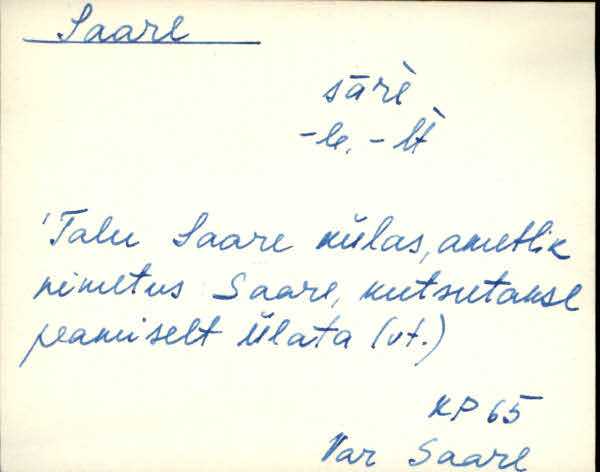 Saare
sārè
-le, -lt
'Talu Saare külas, ametlik
nimetus Saare, kutsutakse
peamiselt Ülata (vt.)
KP 65
Var Saare